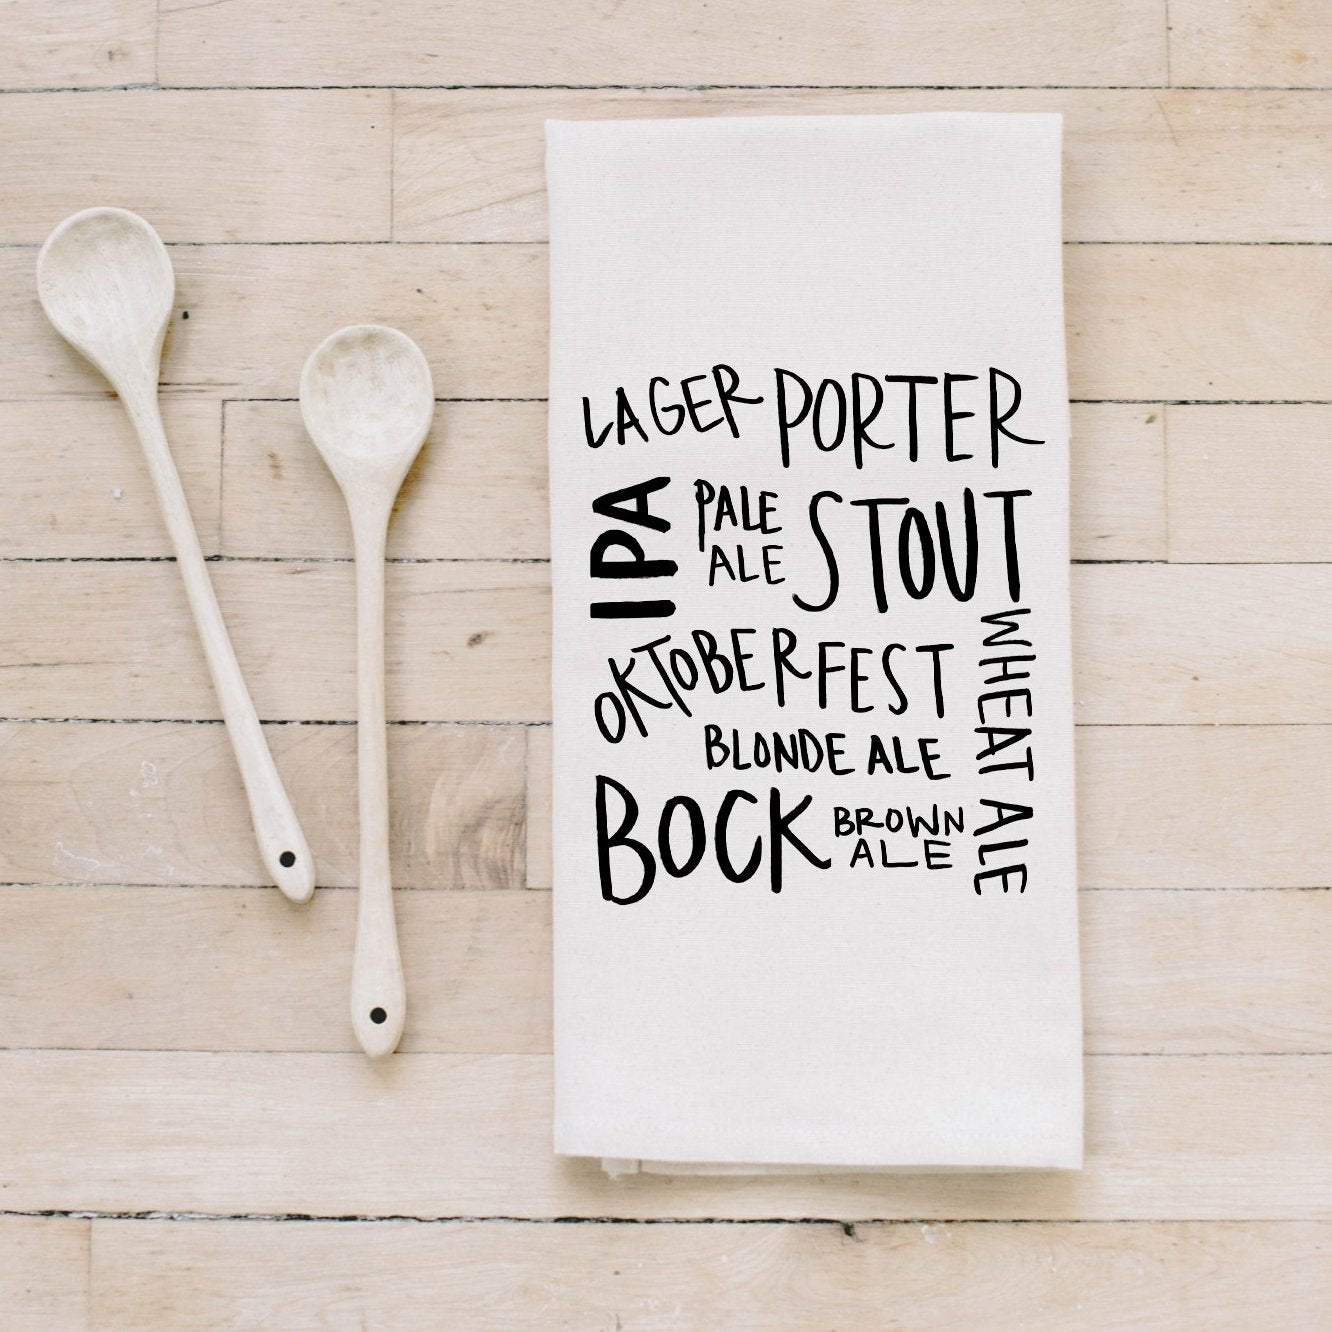 LAGER PORTER
IPA
PALE
ALE
STOUT
OKTOBERFEST
WHEAT ALE
BLONDE ALE
BOCK
BROWN
ALE